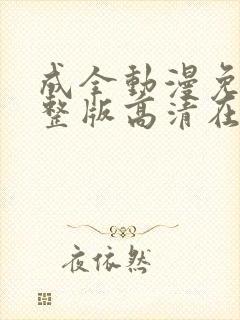 成全動漫免
整版高清在
夜依然